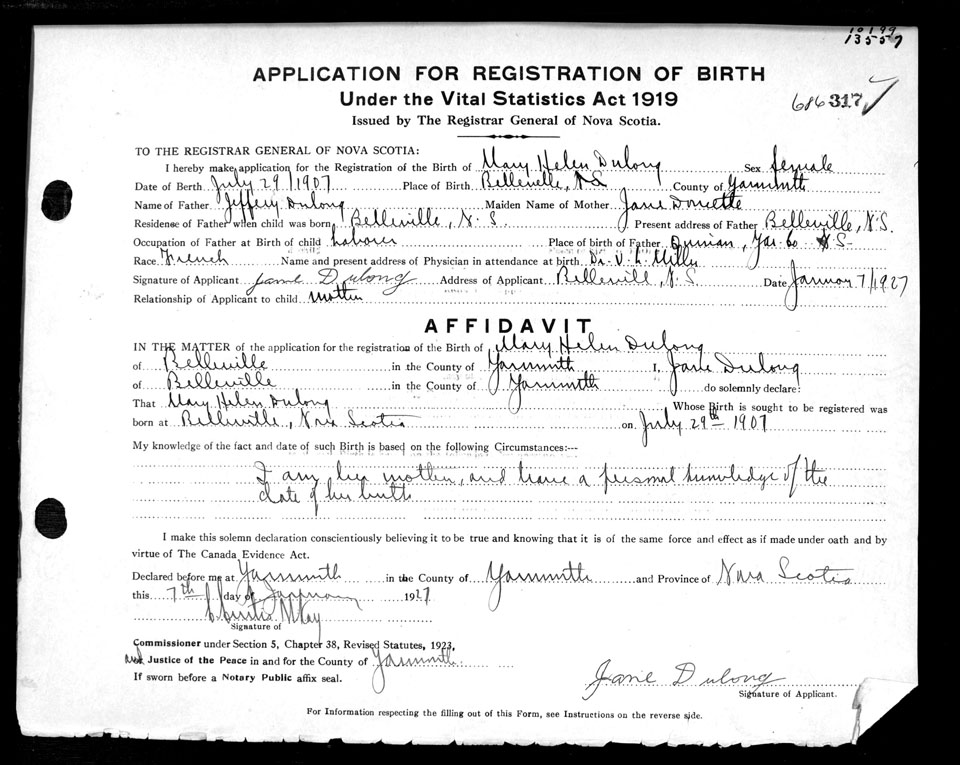 10199
13557
APPLICATION FOR REGISTRATION OF BIRTH
Under the Vital Statistics Act 1919
686 317
Issued by The Registrar General of Nova Scotia.
TO THE REGISTRAR GENERAL OF NOVA SCOTIA:
I hereby make application for the Registration of the Birth of Mary Helen Dulong Sex female
Date of Birth July 29/1907 Place of Birth Belleville, N.S County of Yarmouth
Name of Father Jeffery Dulong Maiden Name of Mother Jane Doucette
Residense of Father when child was born Belleville, N.S. Present address of Father Belleville, N.S.
Occupation of Father at Birth of child Laborer Place of birth of Father Quinian, Yar. Co N.S-
Race French Name and present address of Physician in attendance at birth Dr. V. L. Miller
Signature of Applicant Jane Dulong Address of Applicant Bellevill, N.S Date January 7/1927
Relationship of Applicant to child mother
AFFIDAVIT
IN THE MATTER of the application for the registration of the Birth of Mary Helen Dulong
of Belleville in the County of Yarmouth I, Jane Dulong
of Belleville in the County of Yarmouth do solemnly declare:
That Mary Helen Dulong Whose Birth is sought to be registered was
born at Belleville, Nova Scotia on July 29th 1907
My knowledge of the fact and date of such Birth is based on the following Circumstances:--
I am her mother, and have a personal knowledge of the
date of her birth
I make this solemn declaration conscientiously believing it to be true and knowing that it is of the same force and effect as if made under oath and by
virtue of The Canada Evidence Act.
Declared before me at Yarmouth in the County of Yarmouth and Province of Nova Scotia
this 7th day of January 1927
Curtis McKay
Signature of
Commissioner under Section 5, Chapter 38, Revised Statutes, 1923,
and Justice of the Peace in and for the County of Yarmouth
If sworn before a Notary Public affix seal.
Jane Dulong
Signature of Applicant.
For Information respecting the filling out of this Form, see Instructions on the reverse side.